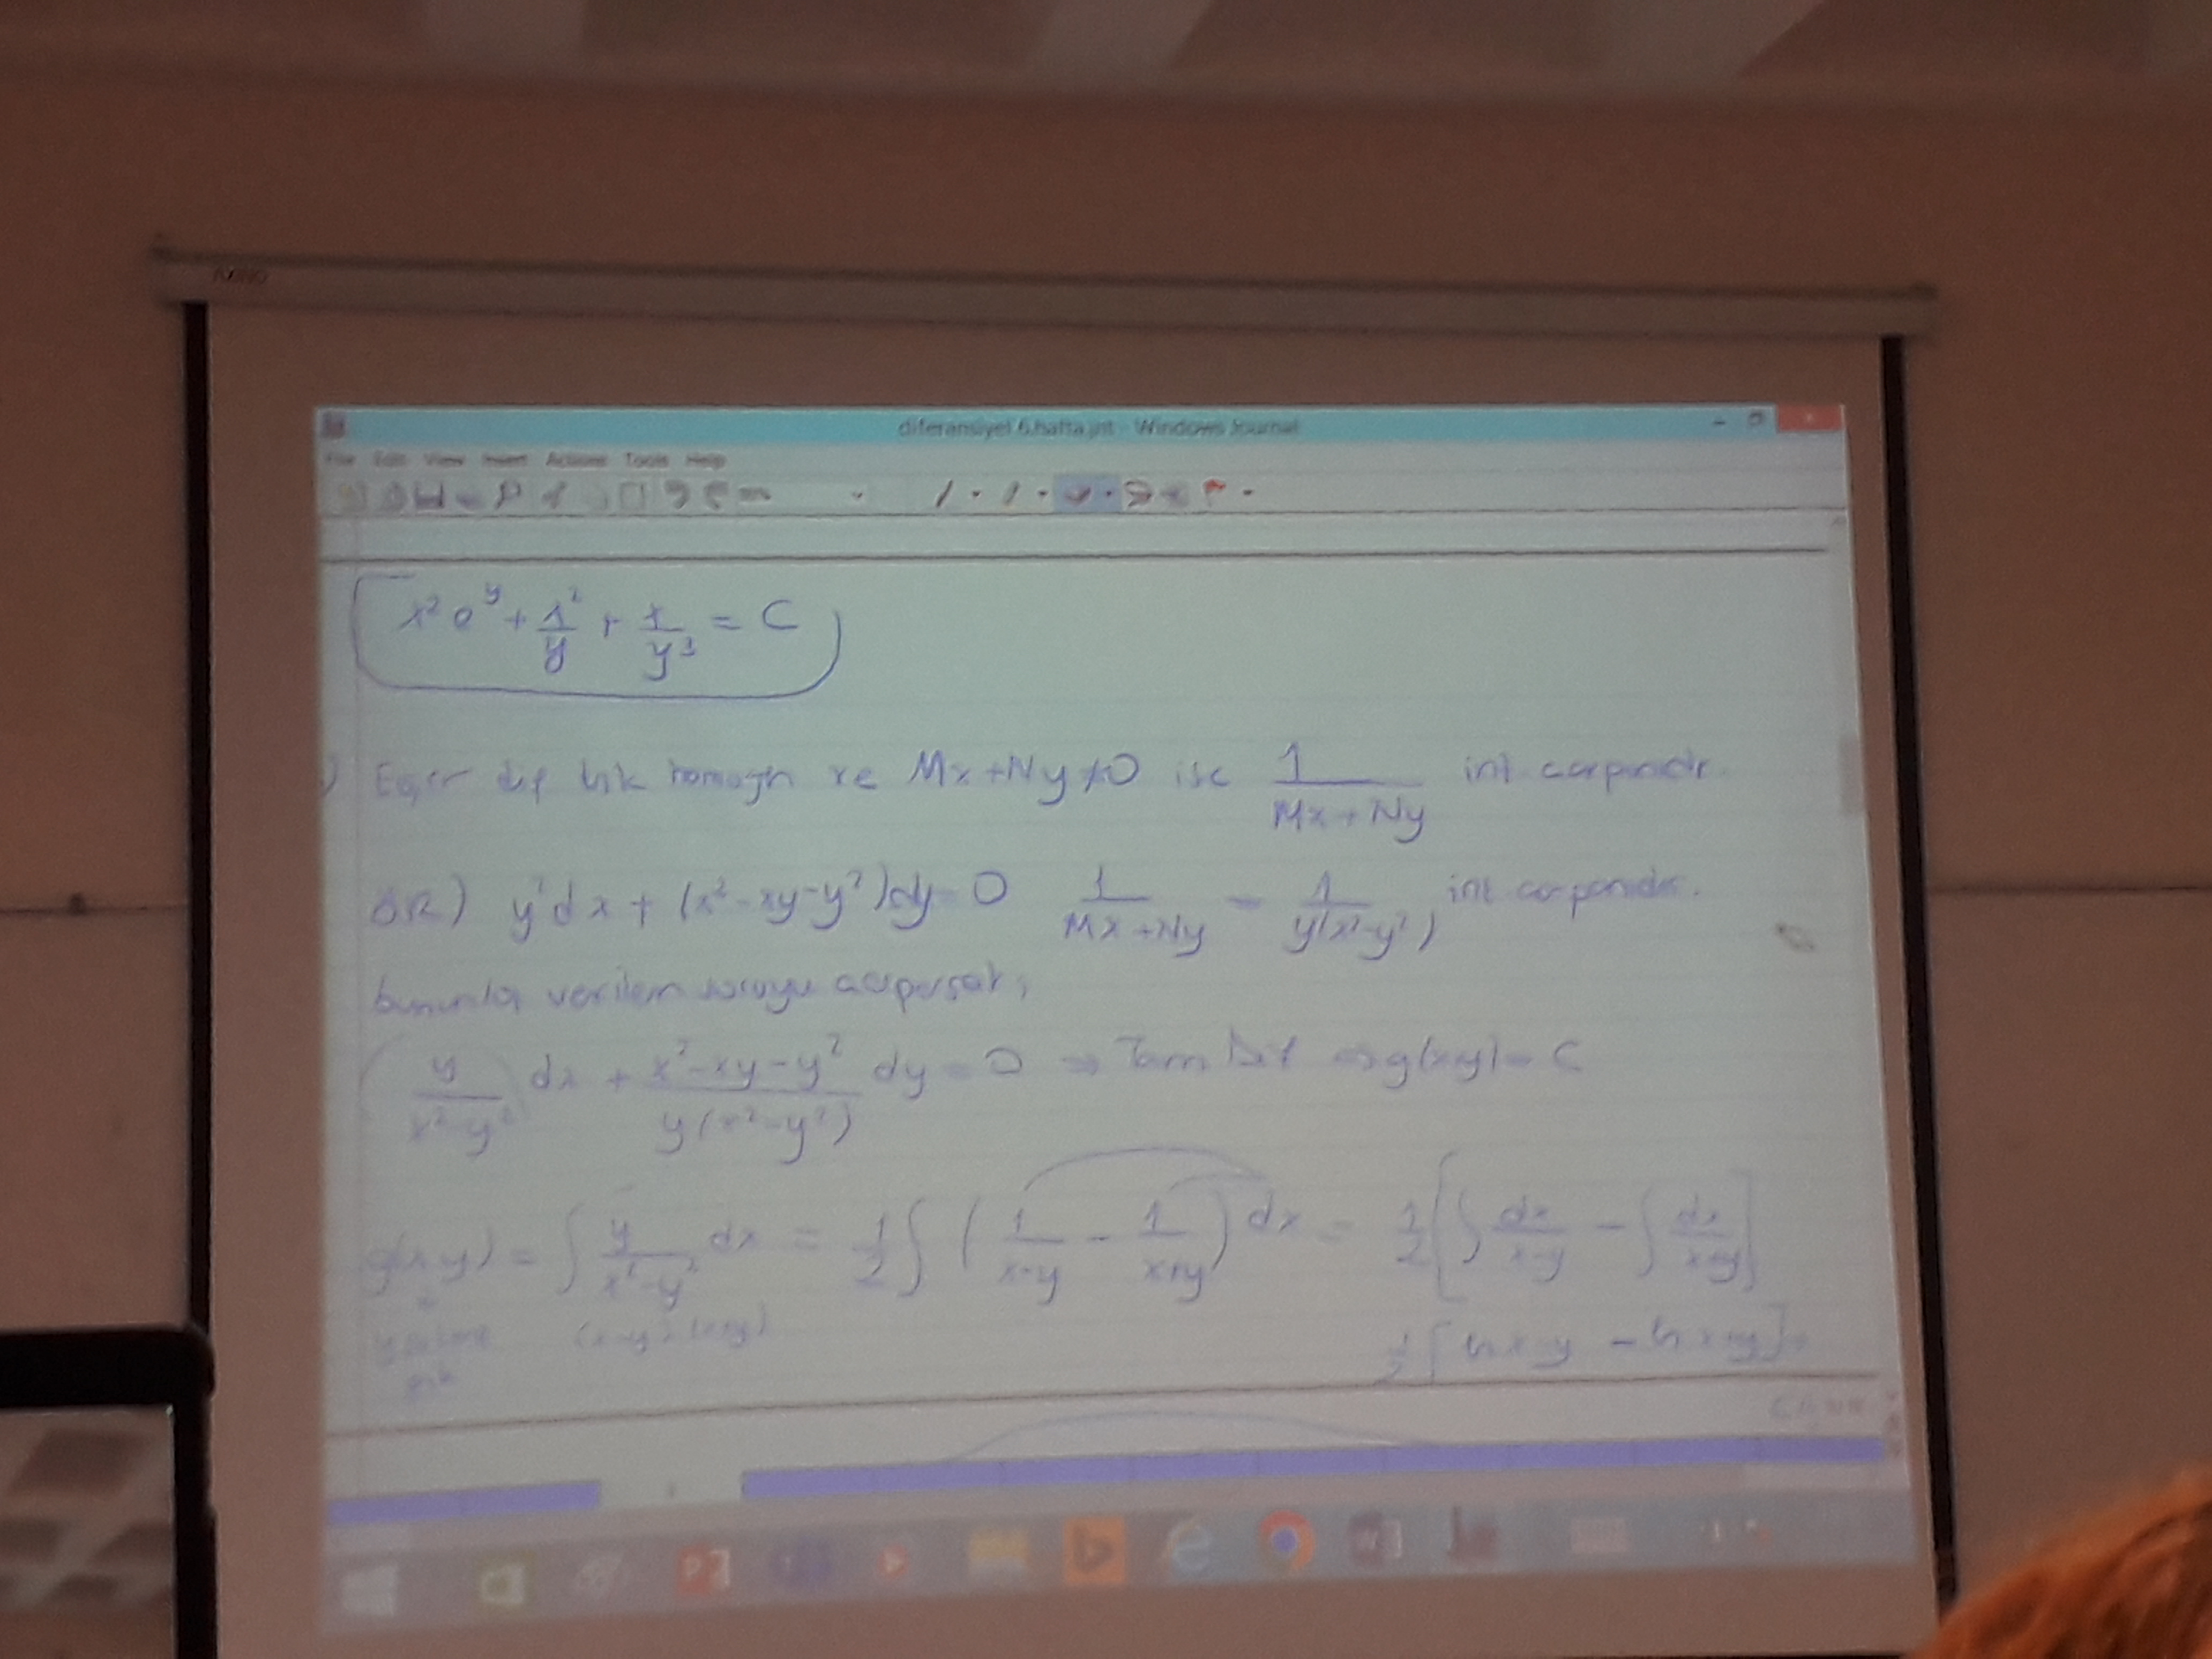 diferansiyel 6.hafta.jnt - Windows Journal
File Edit View Insert Actions Tools Help
x² e^y + x²/y + x/y³ = C
) Eğer dif homojen ve Mx+Ny≠0 ise 1/(Mx+Ny) int. çarpanıdır.
ÖR) y²dx + (x²-xy-y²)dy=0 1/(Mx+Ny) = 1/(y(x²-y²)) int çarpanıdır.
bununla verilen soruyu çarparsak;
y/(x²-y²) dx + (x²-xy-y²)/(y(x²-y²)) dy = 0 ⇒ Tam Dif ⇒ g(x,y) = C
g(x,y) = ∫ y/(x²-y²) dx = 1/2 ∫ (1/(x-y) - 1/(x+y)) dx = 1/2 [∫ dx/(x-y) - ∫ dx/(x+y)]
(x-y) (x+y) 1/2 [ln x-y - ln x+y] =